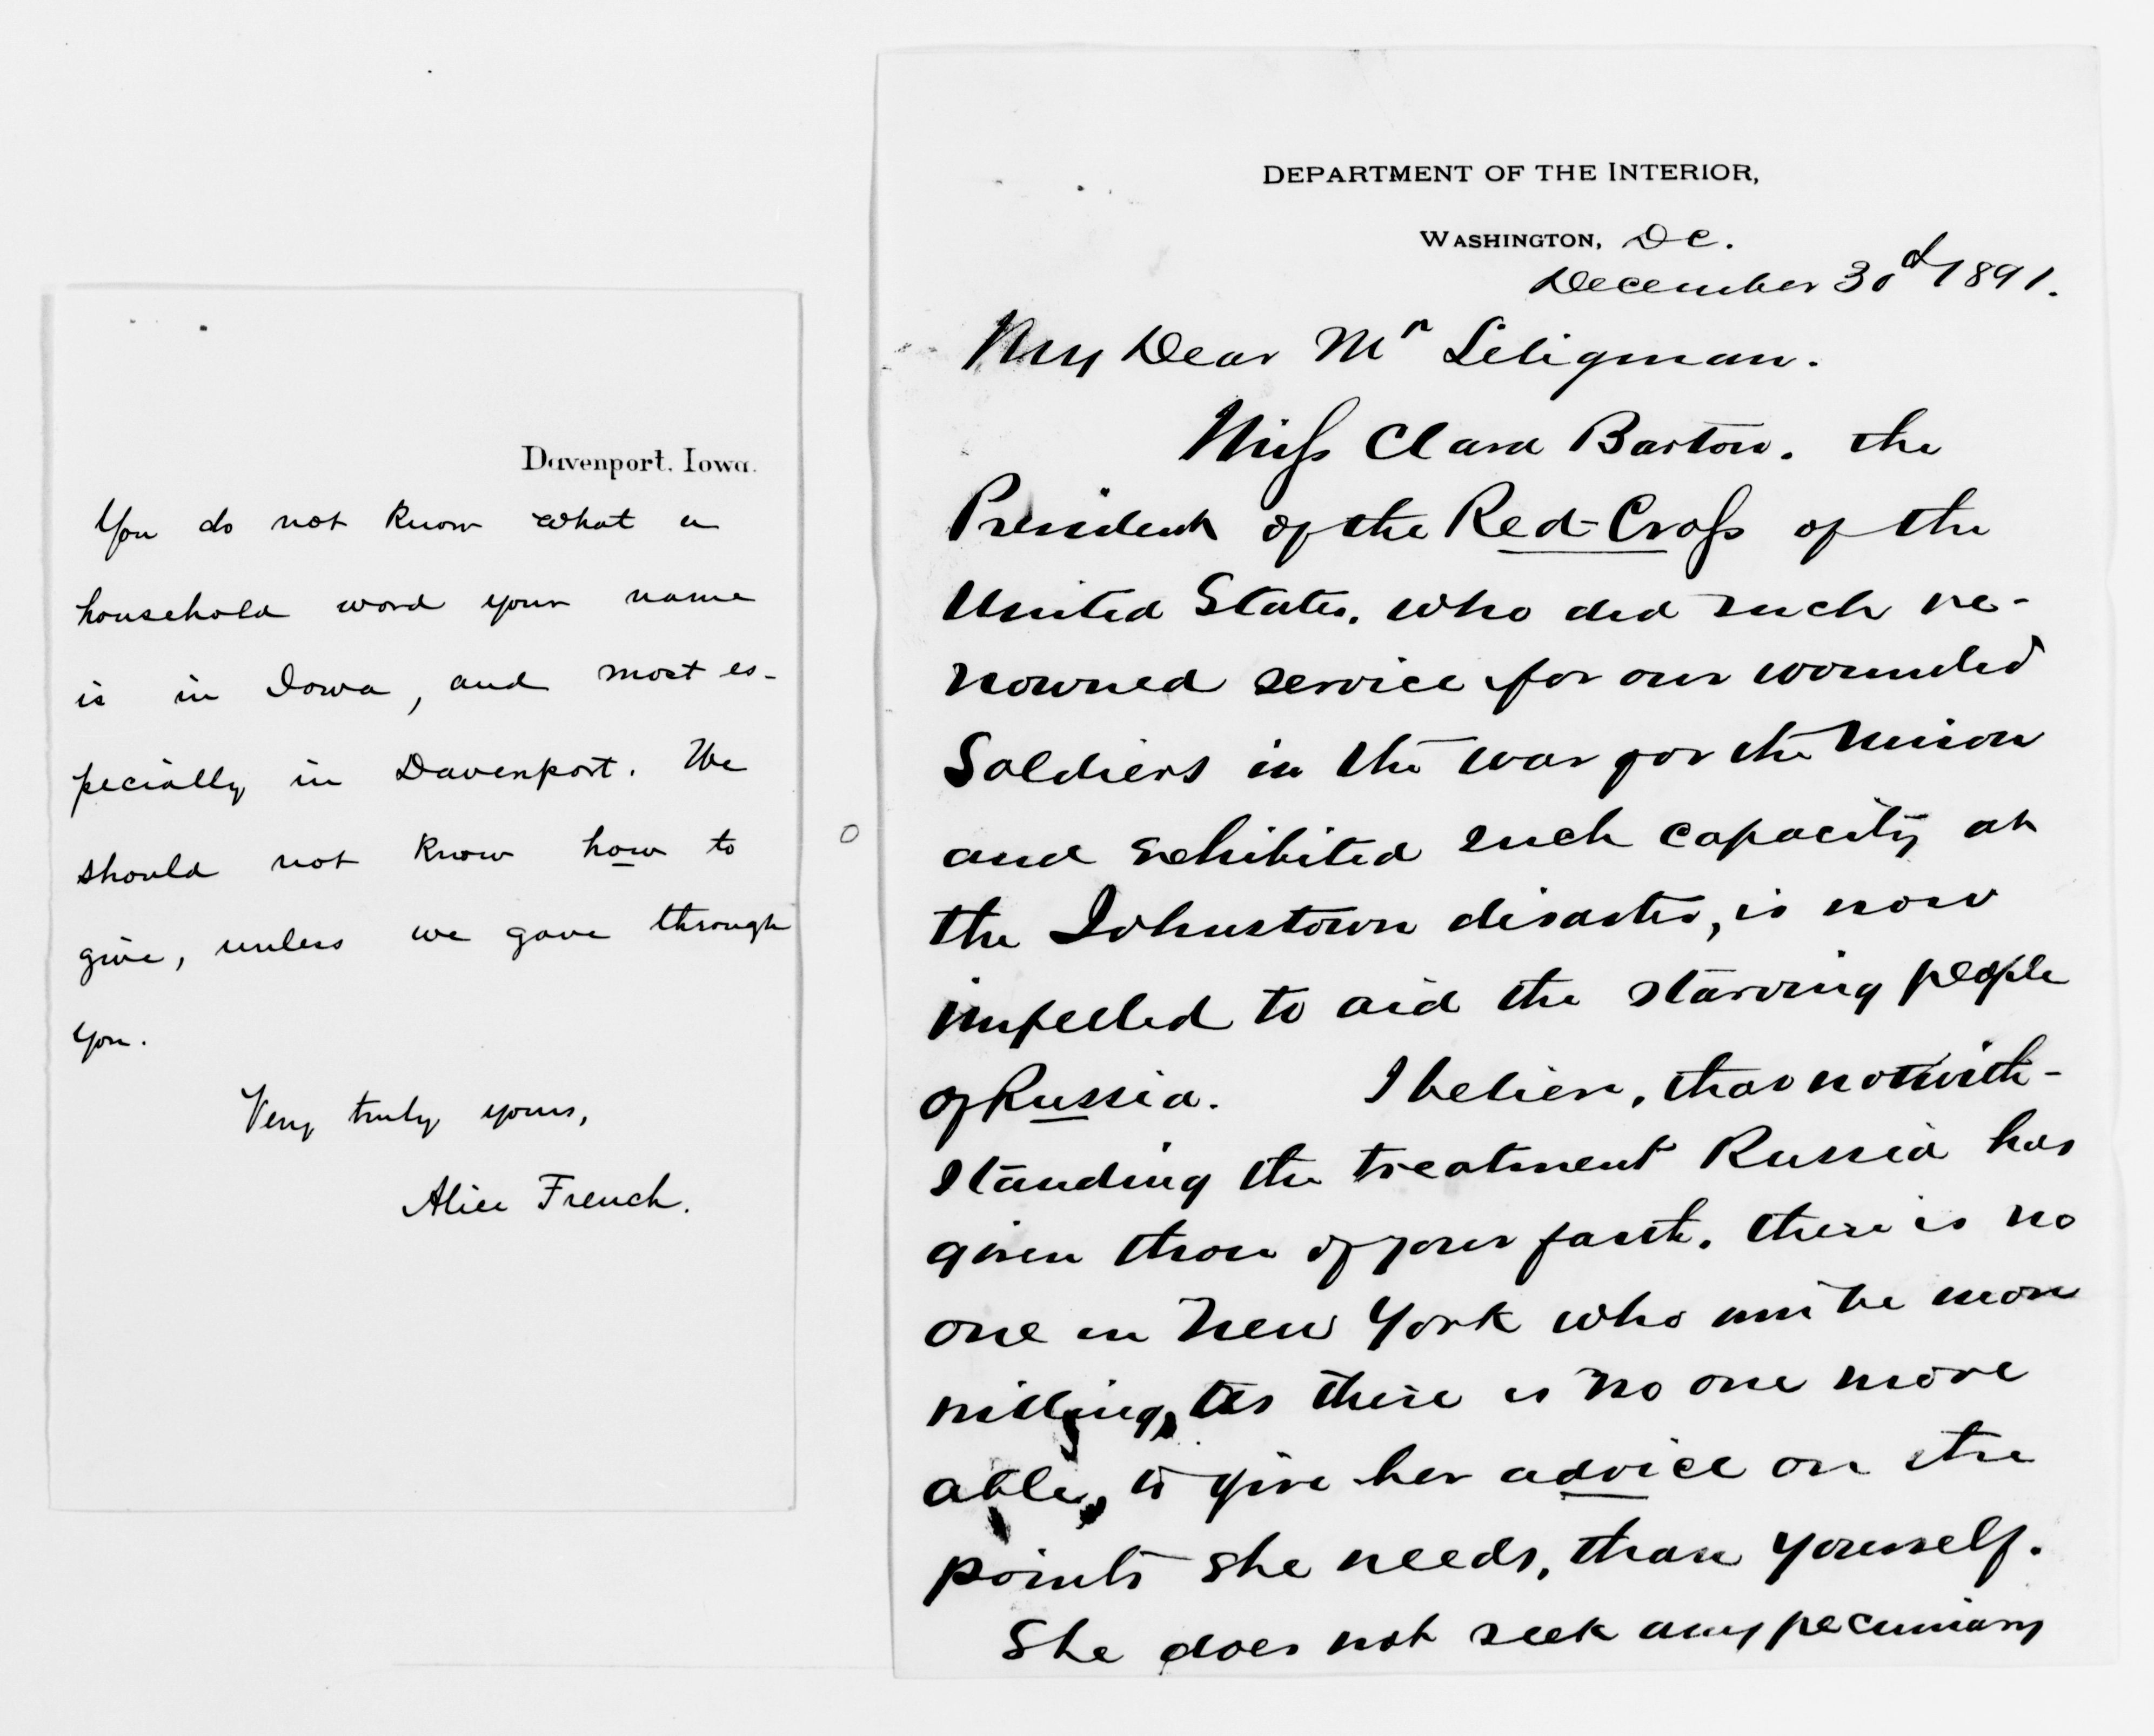 Davenport, Iowa.
You do not know what a
household word your name
is in Iowa, and most es-
pecially in Davenport. We
should not know how to
give, unless we gave through
you.
Very truly yours,
Alice French.
DEPARTMENT OF THE INTERIOR,
WASHINGTON, DC.
December 30d 1891.
My Dear Mr Seligman.
Miss Clara Barton. the
President of the Red-Cross of the
United States. who did such re-
nowned service for our wounded
Soldiers in the war for the Union
and exhibited such capacity at
the Johnstown disaster, is now
impelled to aid the starving people
of Russia. I believe, that notwith-
standing the treatment Russia has
given those of your faith. there is no
one in New York who will be more
willing, as there is no one more
able, to give her advice on the
points she needs, than yourself.
She does not seek any pecuniary